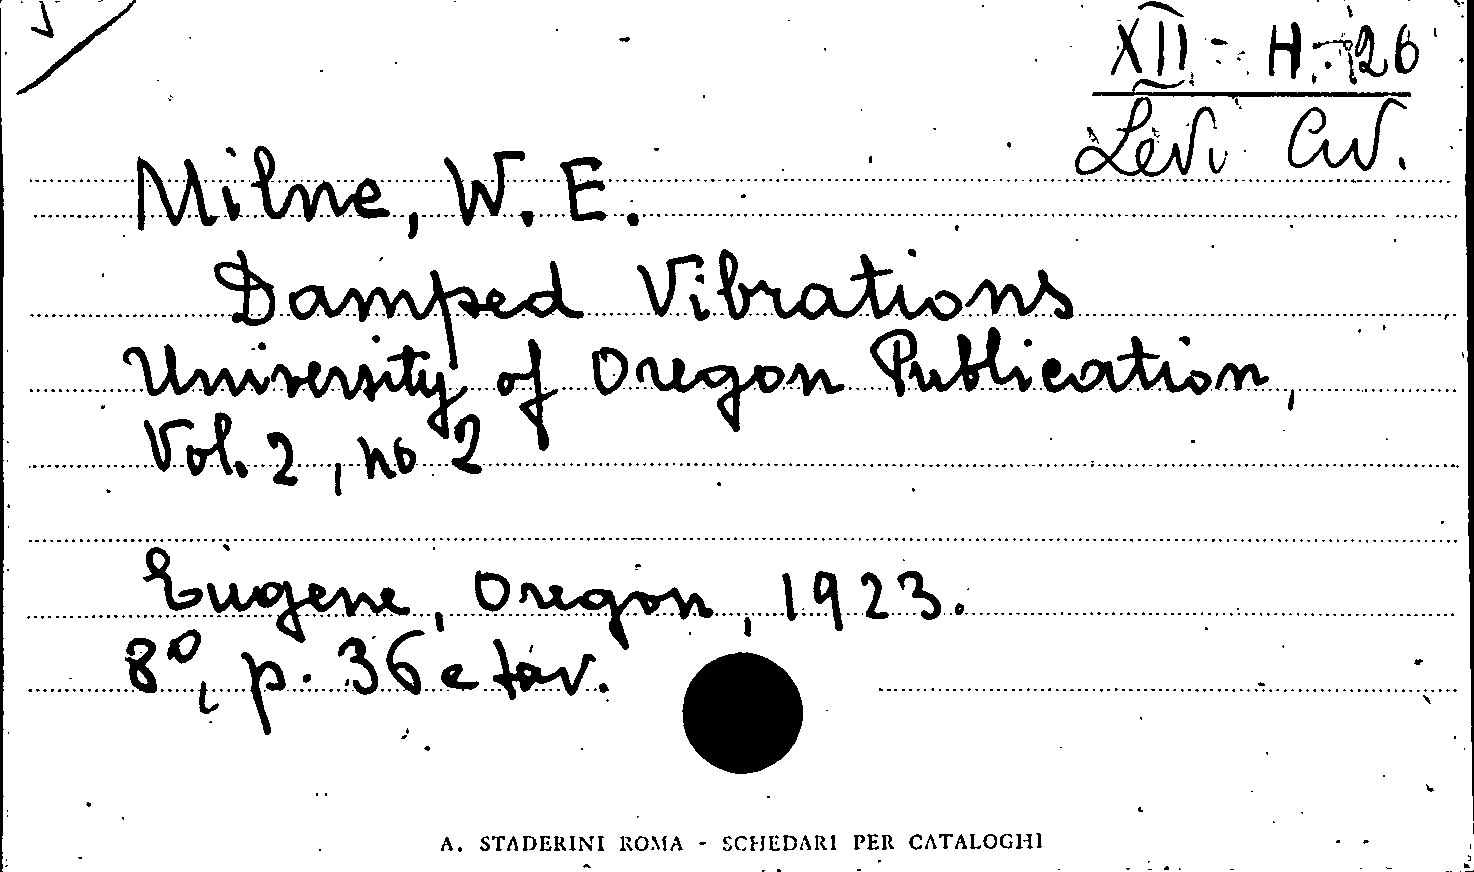 XII - H - 26
Levi Civ.
Milne, W. E.
Damped Vibrations
University of Oregon Publication,
Vol. 2, no 2
Eugene, Oregon, 1923.
8°, p. 36 e tav.
A. STADERINI ROMA - SCHEDARI PER CATALOGHI